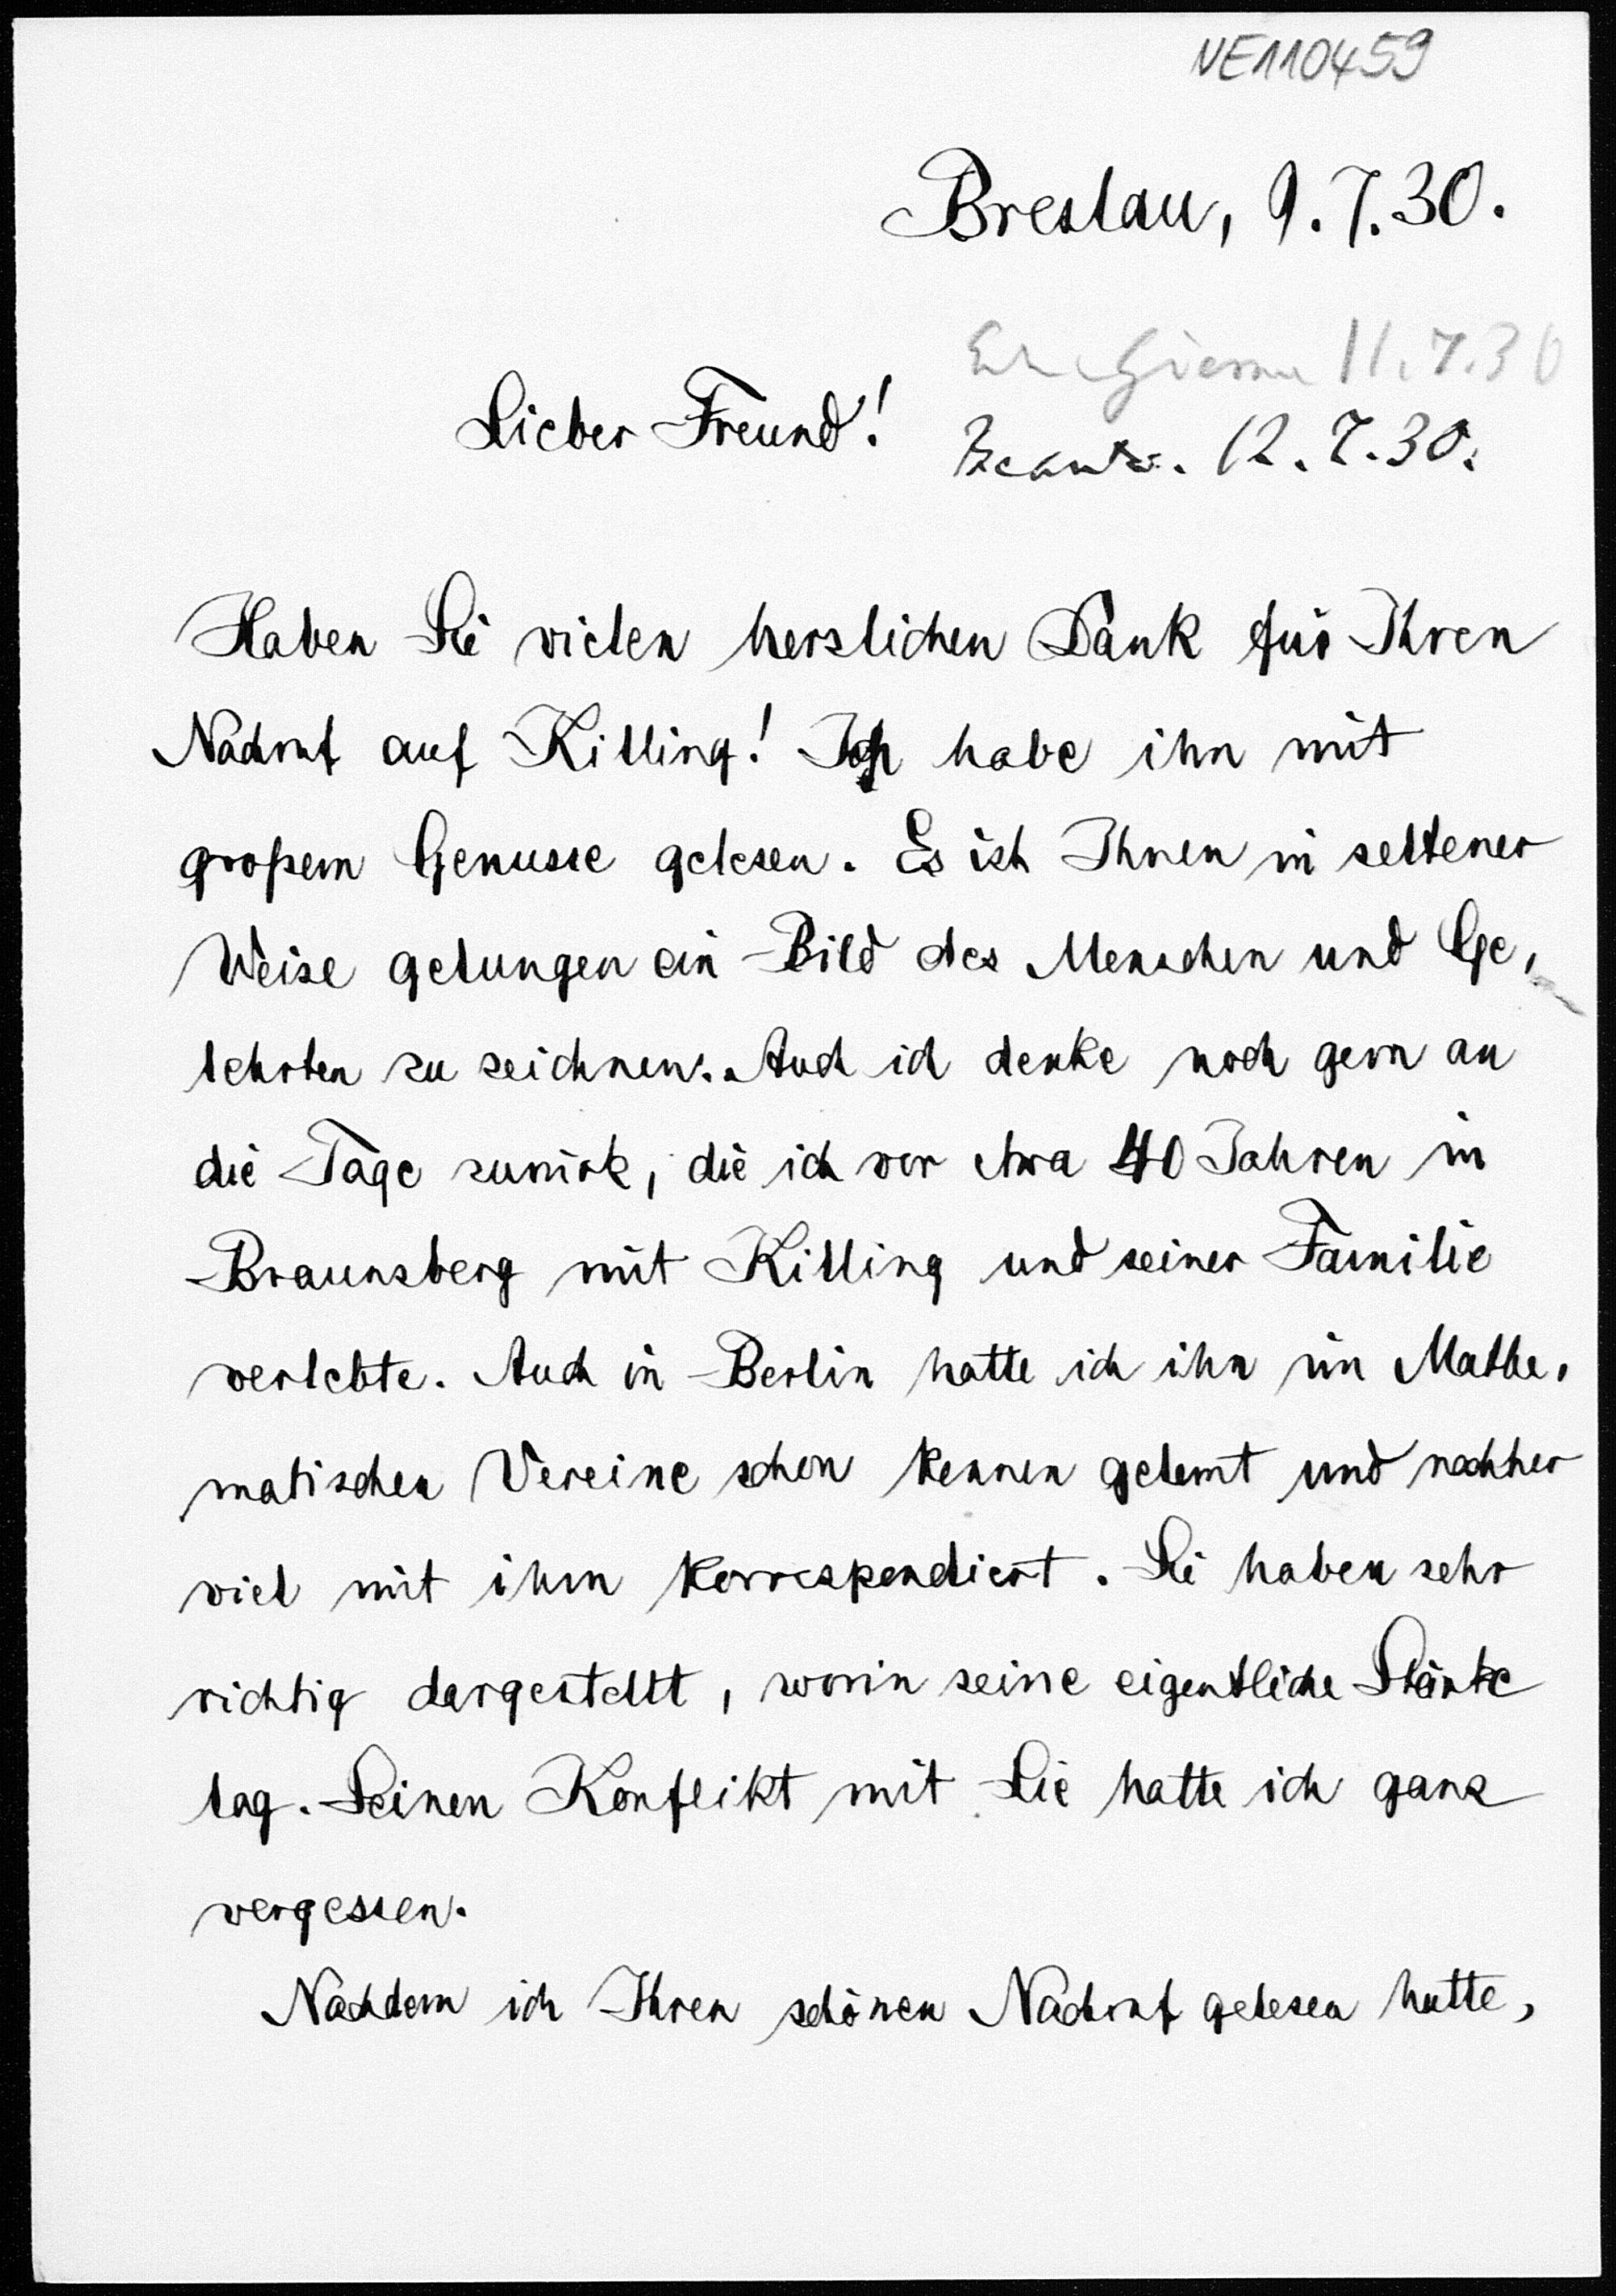 NE110459
Breslau, 9.7.30.
Erh. Giessen 11.7.30
Lieber Freund!
Beantw. 12.7.30.
Haben Sie vielen herzlichen Dank für Ihren
Nachruf auf Killing! Ich habe ihn mit
großem Genusse gelesen. Es ist Ihnen in seltener
Weise gelungen ein Bild des Menschen und Ge-
lehrten zu zeichnen. Auch ich denke noch gern an
die Tage zurück, die ich vor etwa 40 Jahren in
Braunsberg mit Killing und seiner Familie
verlebte. Auch in Berlin hatte ich ihn im Mathe-
matischen Vereine schon kennen gelernt und nachher
viel mit ihm korrespondiert. Sie haben sehr
richtig dargestellt, worin seine eigentliche Stärke
lag. Seinen Konflikt mit Lie hatte ich ganz
vergessen.
Nachdem ich Ihren schönen Nachruf gelesen hatte,